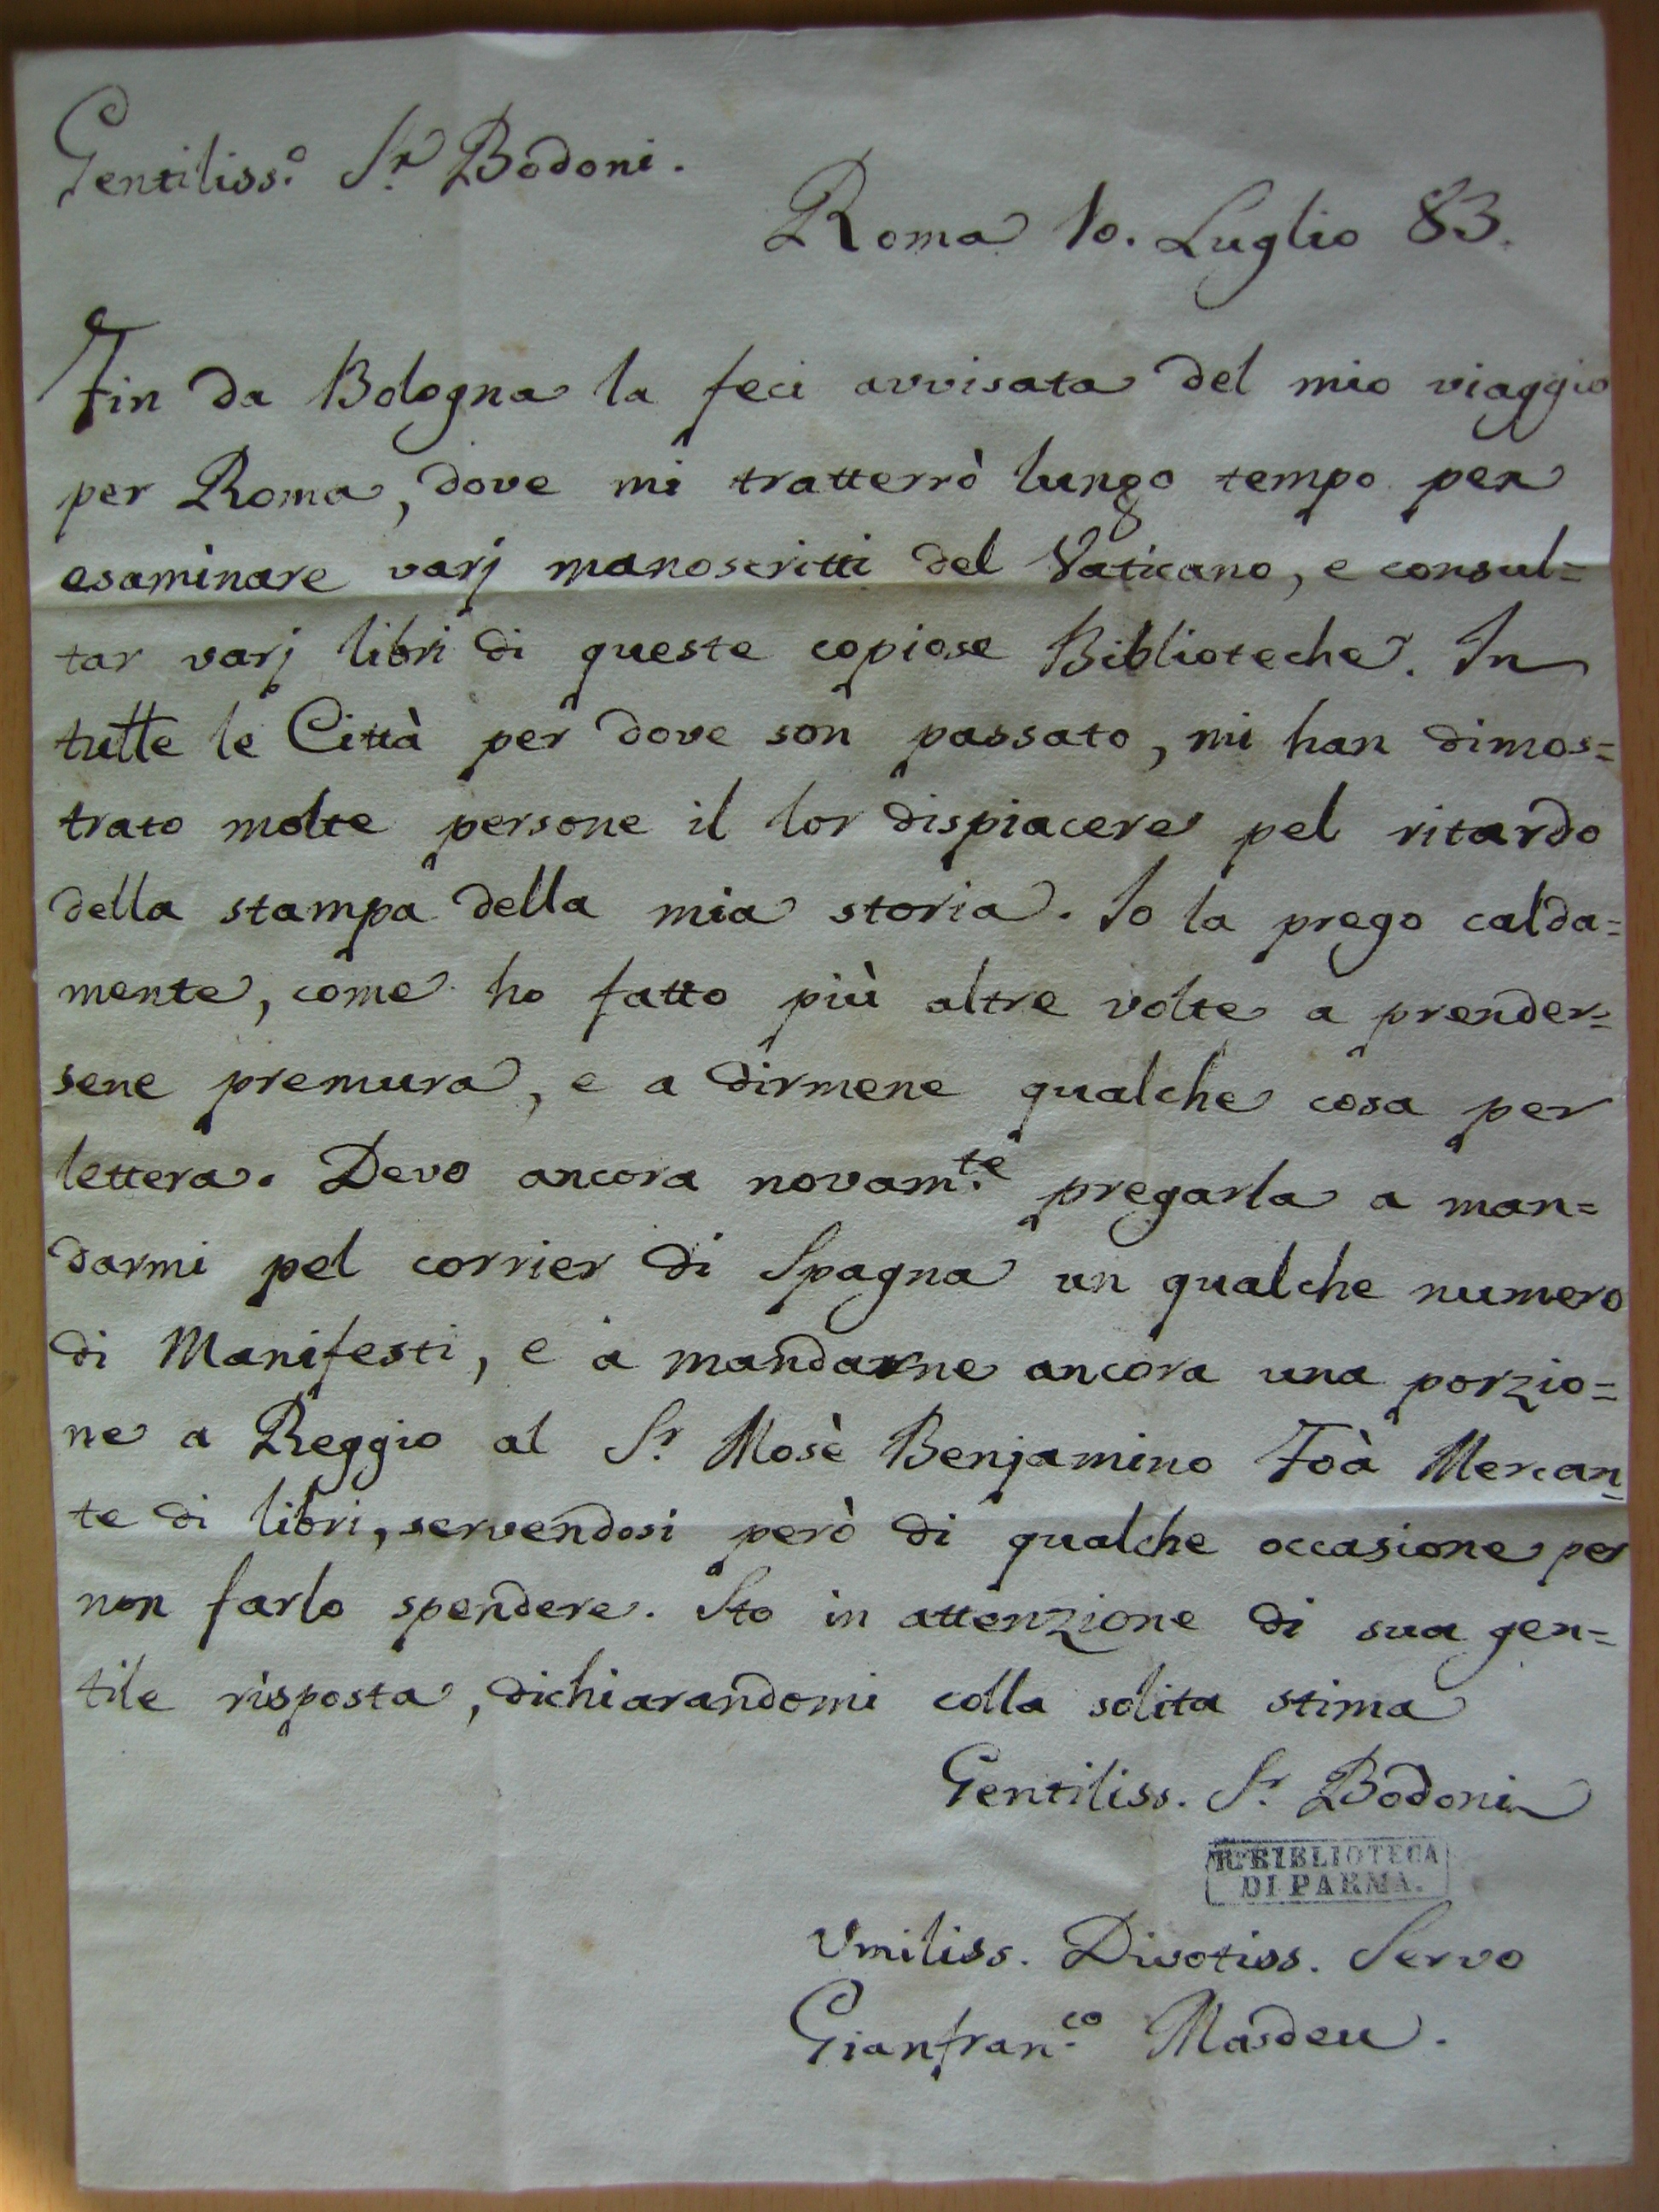 Gentiliss.o Sr Bodoni.
Roma 10. Luglio 83.
Fin da Bologna la feci avvisata del mio viaggio
per Roma, dove mi tratterrò lungo tempo per
esaminare varj manoscritti del Vaticano, e consul=
tar varj libri di queste copiose Biblioteche. In
tutte le Città per dove son passato, mi han dimos=
trato molte persone il lor dispiacere pel ritardo
della stampa della mia storia. Io la prego calda=
mente, come ho fatto più altre volte a prender=
sene premura, e a dirmene qualche cosa per
lettera. Devo ancora novam.te pregarla a man=
darmi pel corrier di Spagna un qualche numero
di Manifesti, e a mandarne ancora una porzio=
ne a Reggio al Sr Mosè Benjamino Foà Mercan=
te di libri, servendosi però di qualche occasione per
non farlo spendere. Sto in attenzione di sua gen=
tile risposta, dichiarandomi colla solita stima
Gentiliss. Sr. Bodoni
R. BIBLIOTECA
DI PARMA.
Umiliss. Divotiss. Servo
Gianfran.co Masdeu.